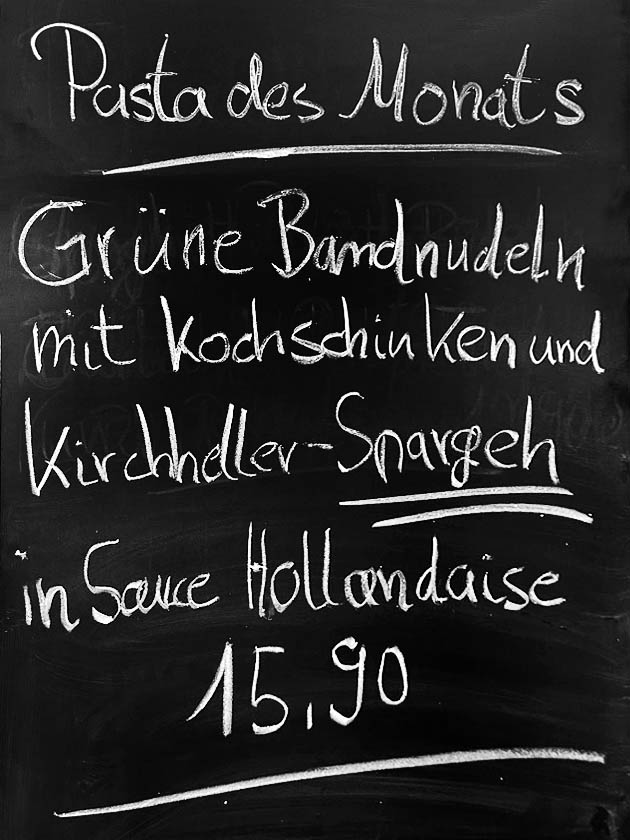 Pasta des Monats
Grüne Bandnudeln
mit Kochschinken und
Kirchheller-Spargeln
in Sauce Hollandaise
15,90